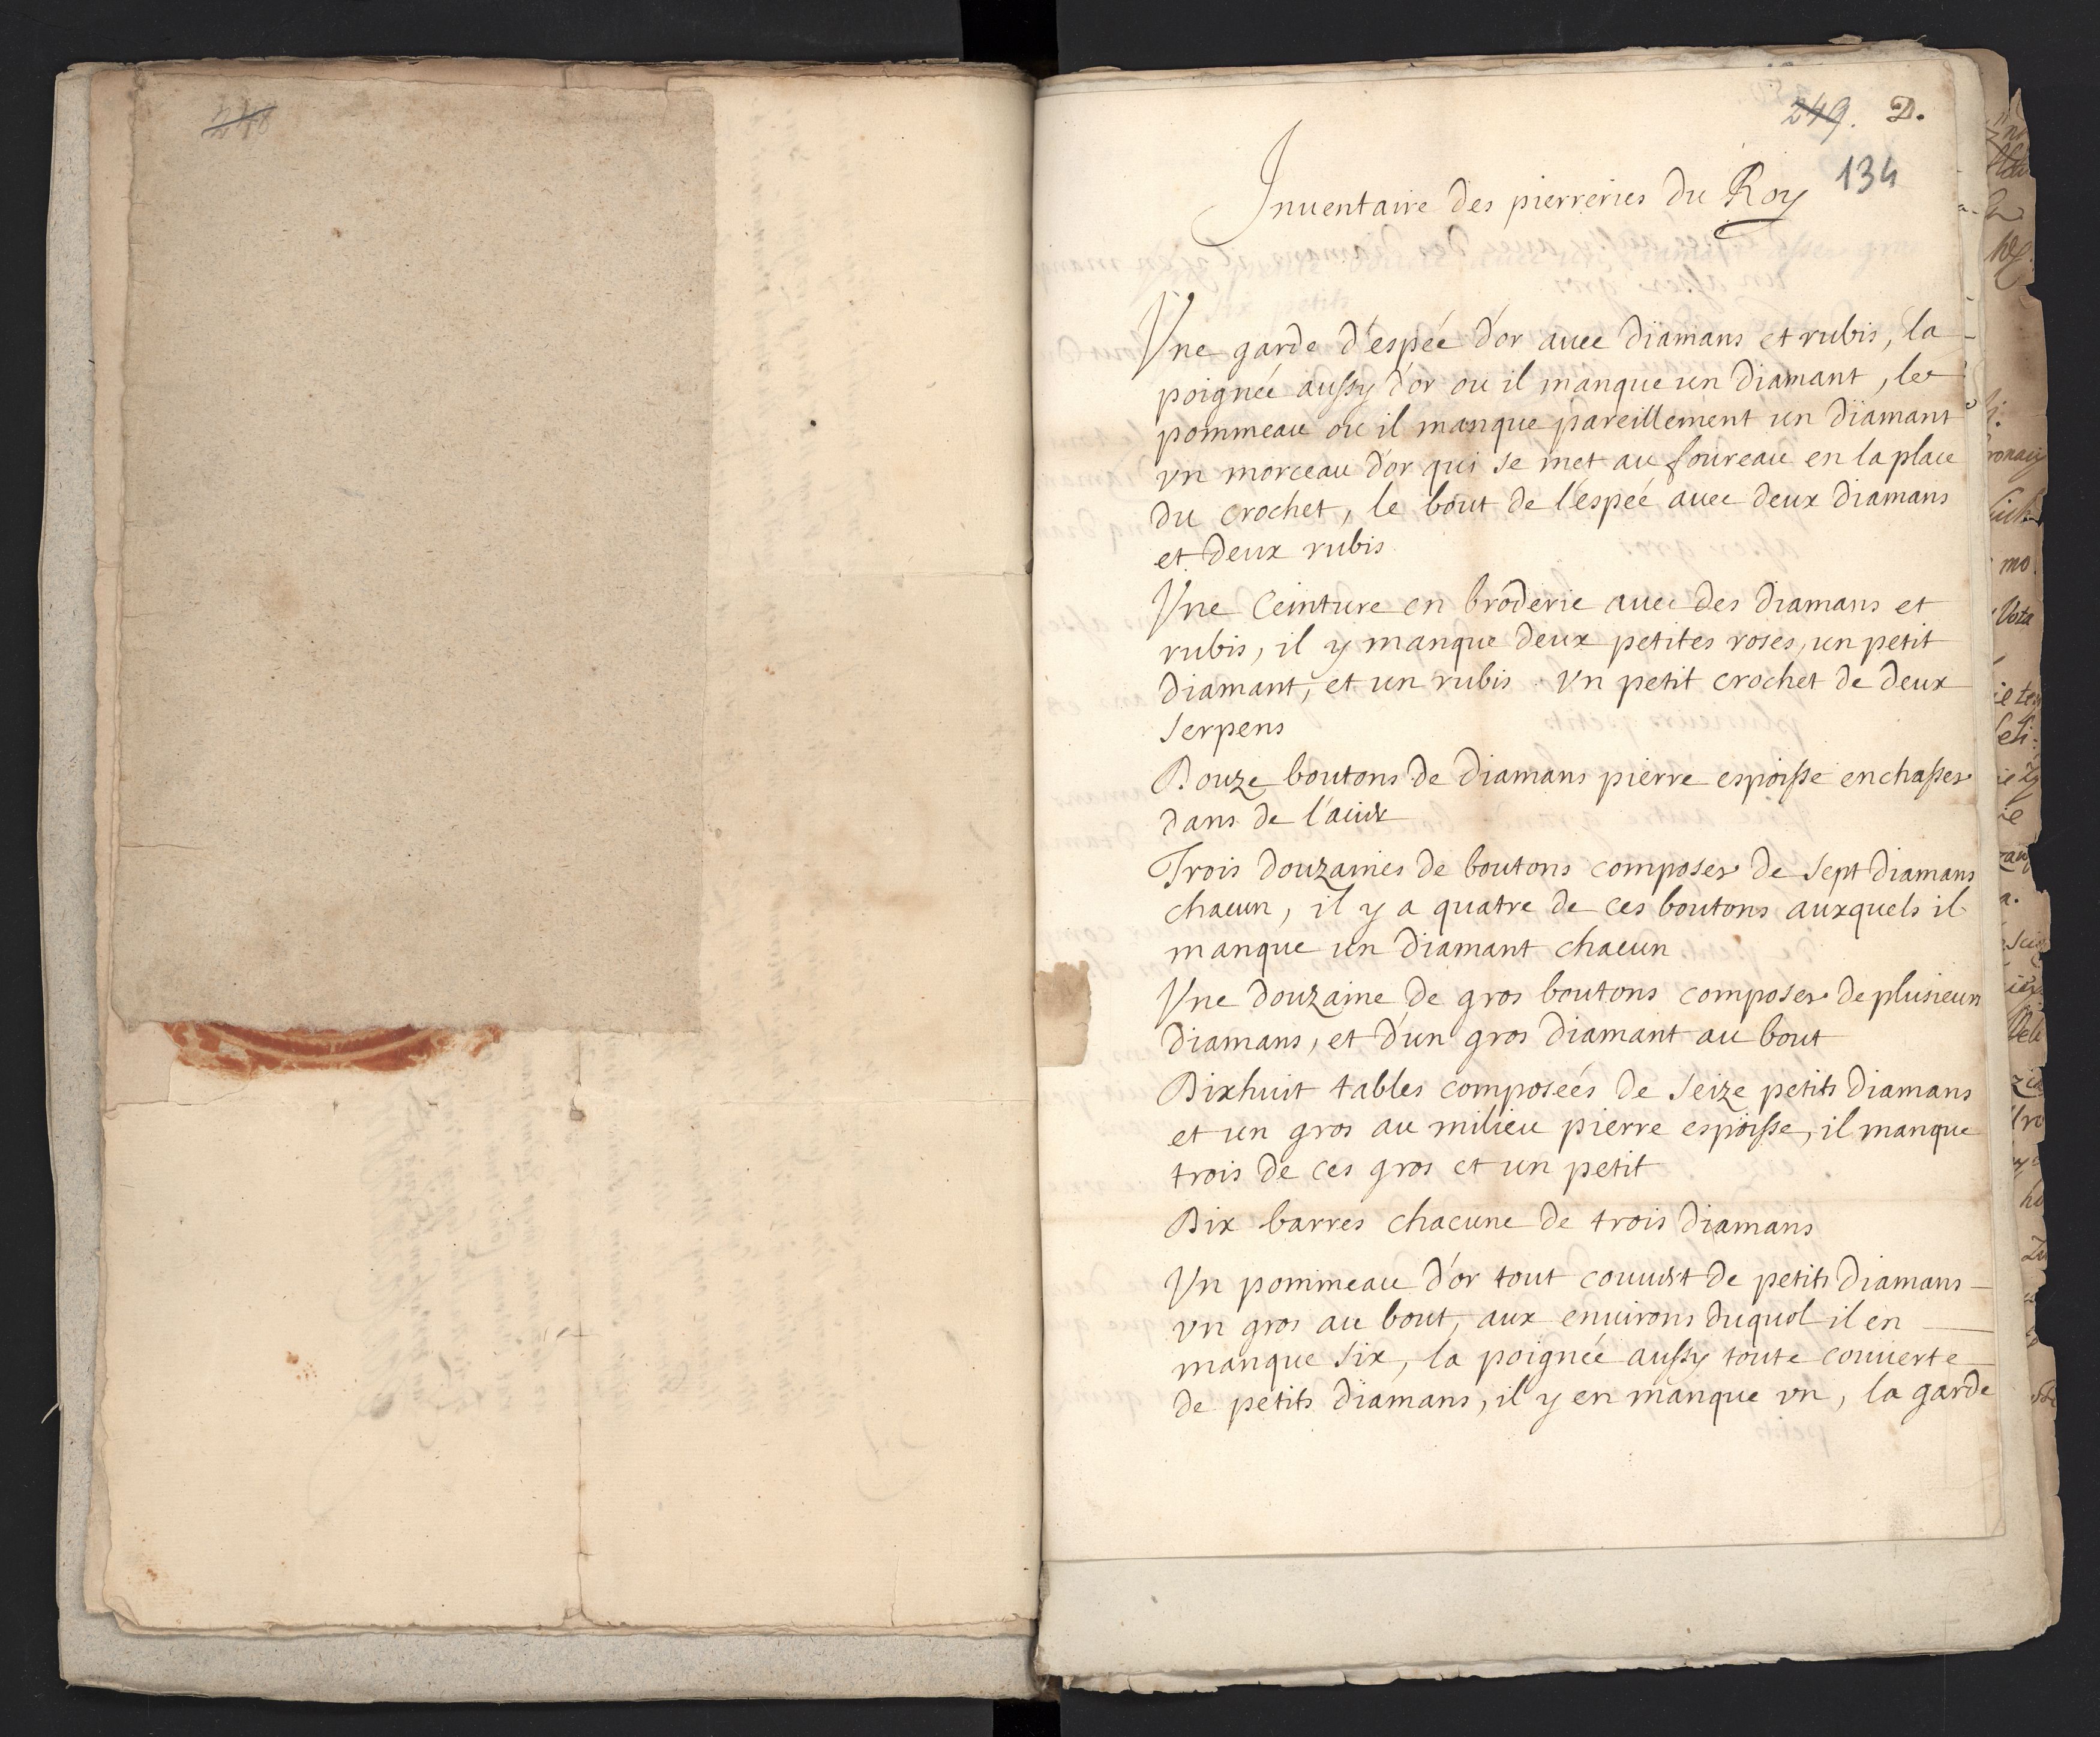 248
249. D.
134
Inuentaire des pierreries du Roy
Vne garde d'espée d'or auec diamans et rubis, la
poignée aussy d'or ou il manque un diamant, le
pommeau ou il manque pareillement un diamant
vn morceau d'or qui se met au foureau en la place
du crochet, le bout de l'espée auec deux diamans
et deux rubis
Vne Ceinture en broderie auec des diamans et
rubis, il y manque deux petites roses, un petit
diamant, et un rubis. Vn petit crochet de deux
serpens
Douze boutons de diamans pierre espoisse enchassez
dans de l'acier
Trois douzaines de boutons composez de sept diamans
chacun, il y a quatre de ces boutons auxquels il
manque un diamant chacun
Vne douzaine de gros boutons composez de plusieurs
diamans, et d'un gros diamant au bout
Dixhuit tables composées de seize petits diamans
et un gros au milieu pierre espoisse, il manque
trois de ces gros et un petit
Dix barres chacune de trois diamans
Vn pommeau d'or tout couuert de petits diamans
vn gros au bout, aux enuirons duquel il en
manque six, la poignée aussy toute couuerte
de petits diamans, il y en manque vn, la garde